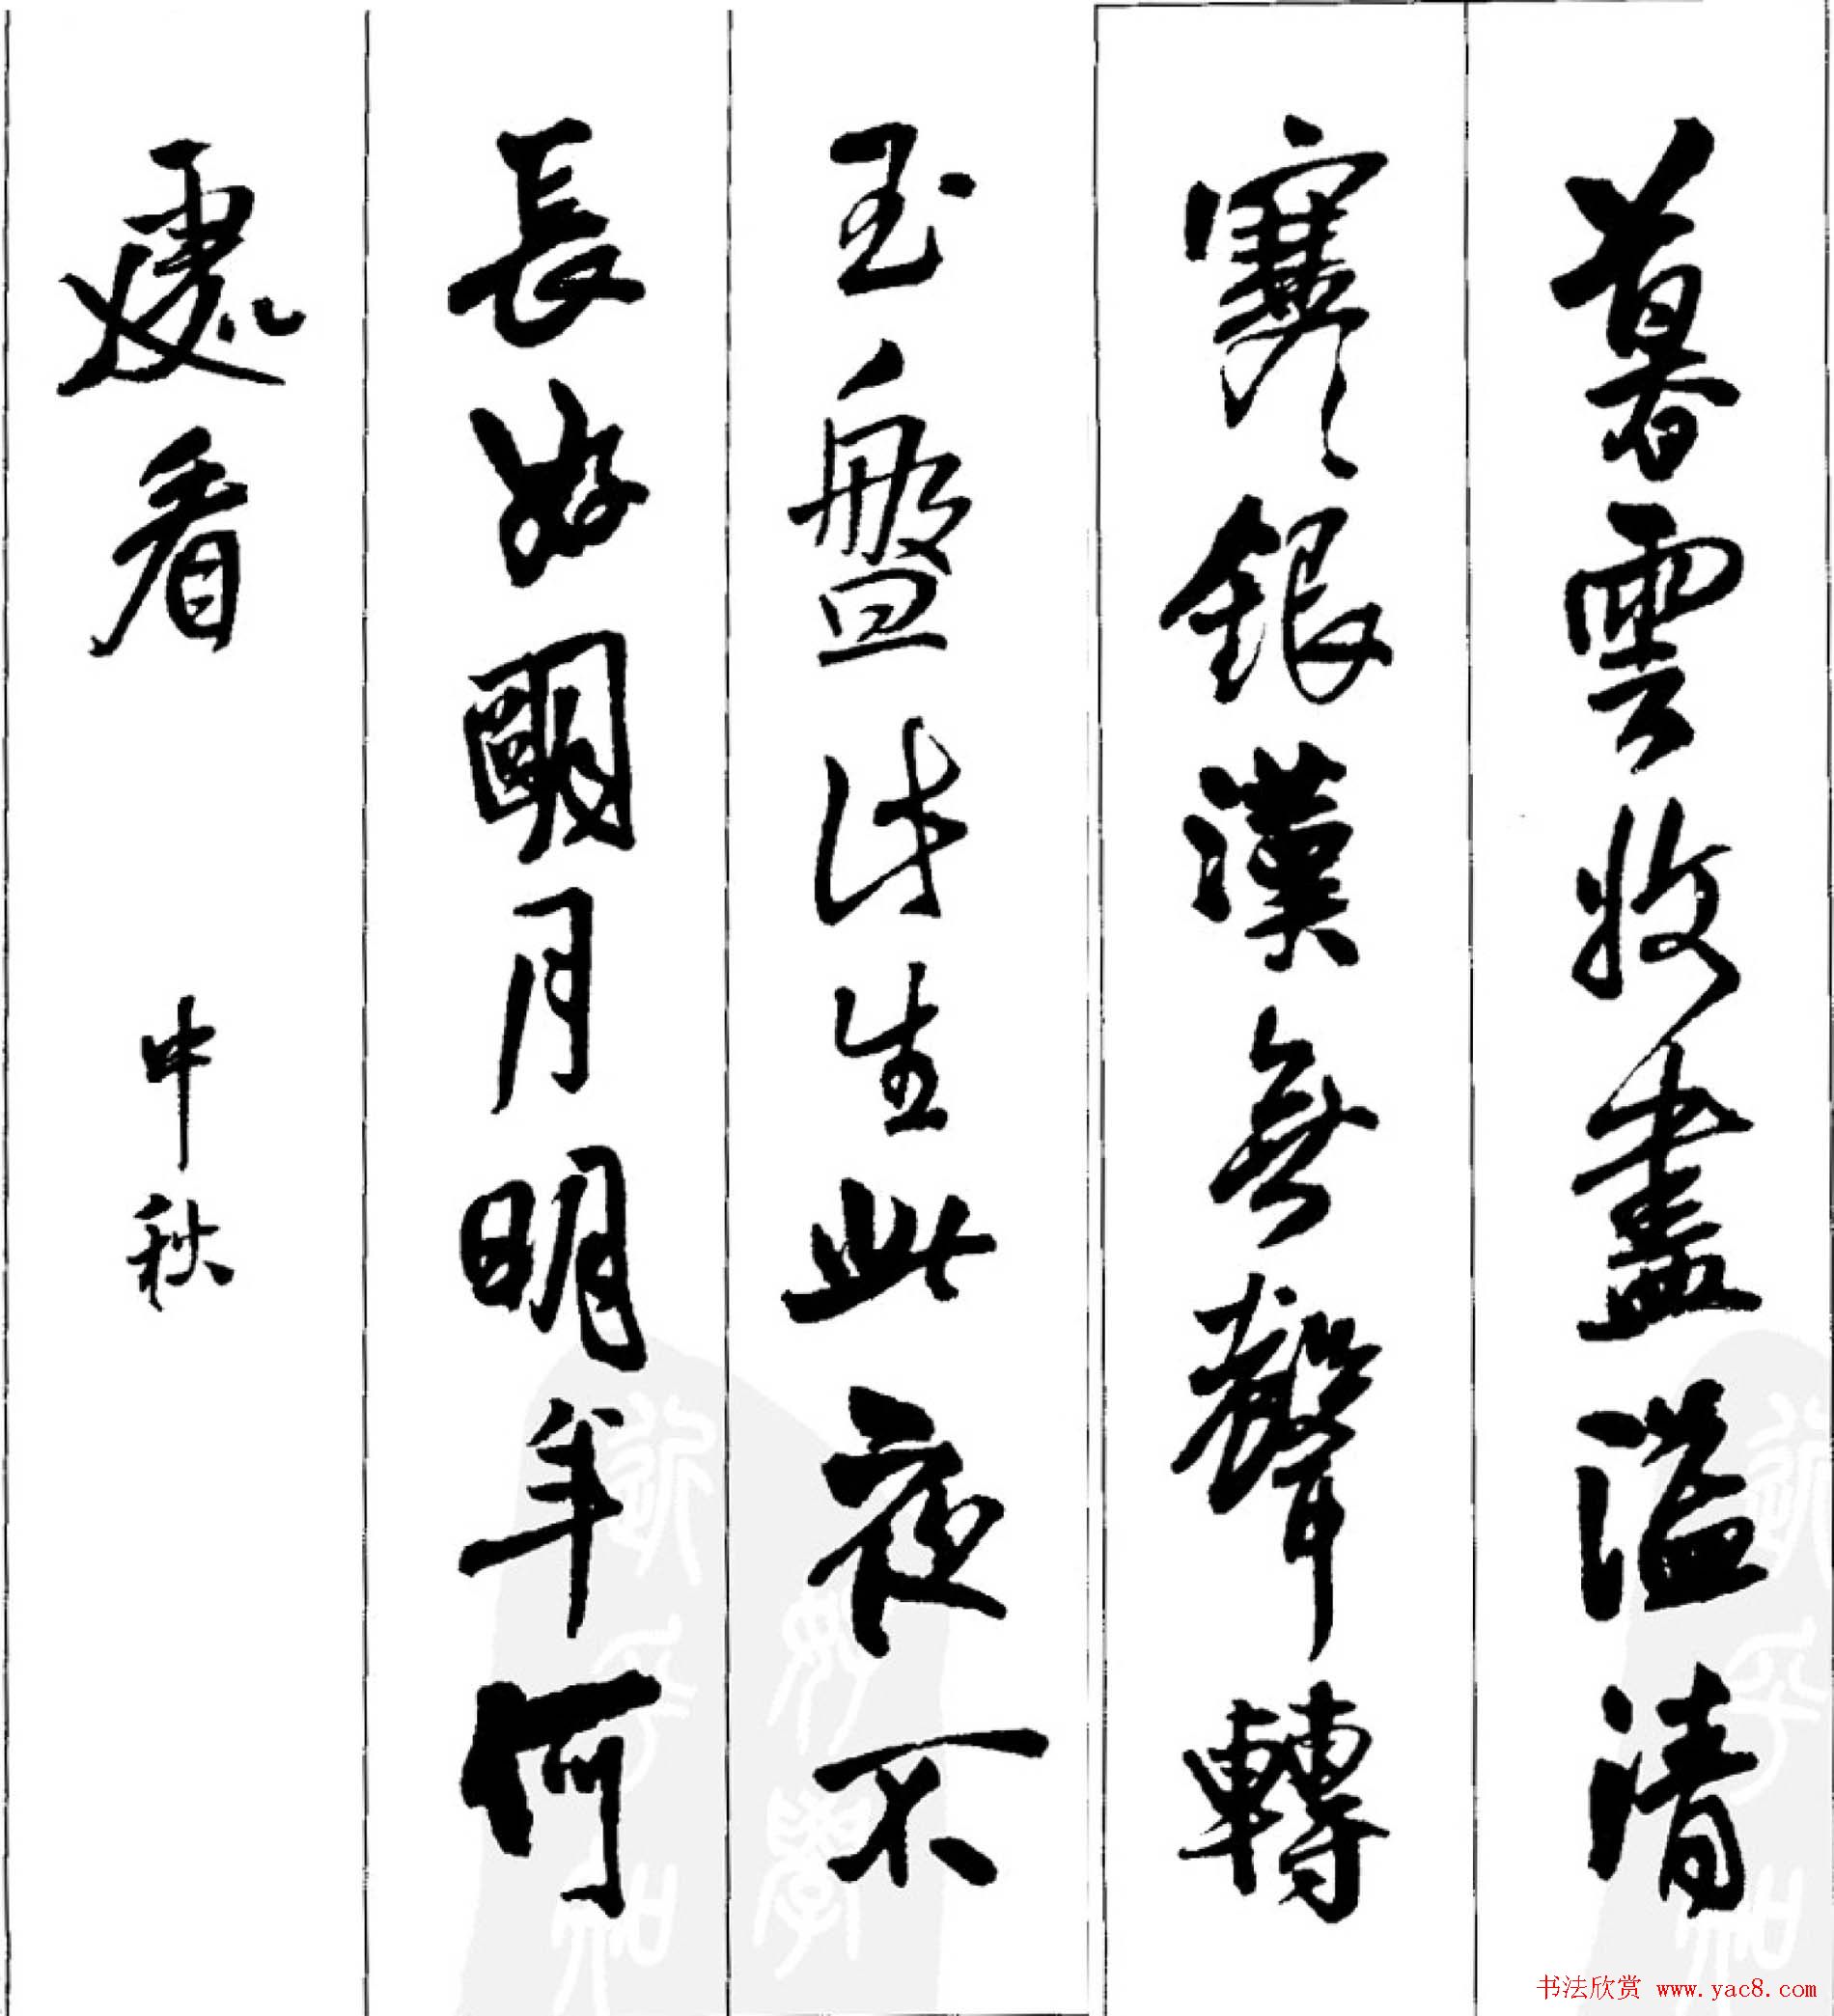 暮雲收盡溢清
寒銀漢無聲轉
玉盤此生此夜不
長好朙月明年何
處看 中秋
书法欣赏 www.yac8.com